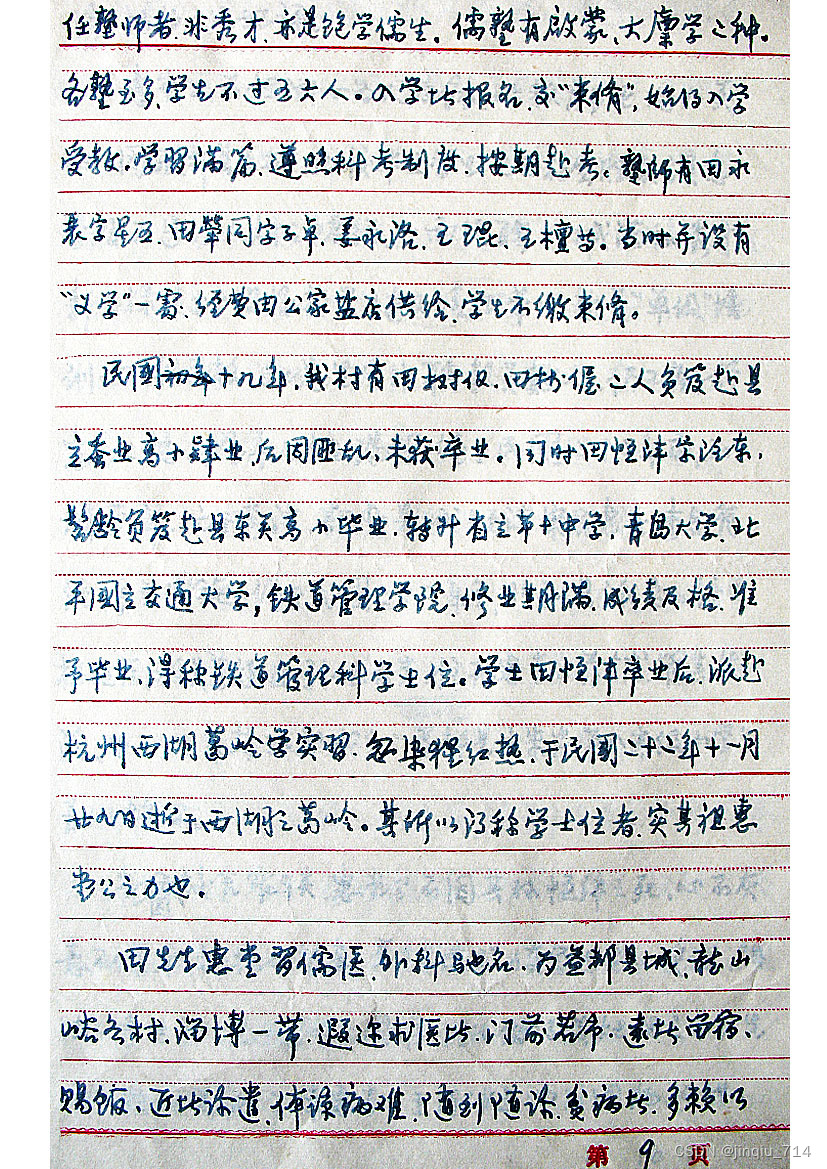 任塾师者,非秀才,亦是饱学儒生。儒塾有启蒙、大黉学之种。
各塾至多,学生不过五六人。入学者报名,交“束脩”,始得入学
受教。学习满篇、遵照科考制度,按期赴考。塾师有田永
字是五、田肇同字子卓、姜永洛、王琨、王檀等。当时并设有
“义学”一处,经费由公家盐店供给,学生不缴束脩。
民国初年十九年,我村有田树仪、田树偓二人负笈赴县
立蚕业高小肄业,后因匪乱,未获卒业。同时田恒沣字泾东,
髫龄负笈赴县东关高小毕业,转升省立第十中学,青岛大学,北
平国立交通大学,铁道管理学院,修业期满,成绩及格,准
予毕业,得称铁道管理科学士位。学士田恒沣卒业后,派赴
杭州西湖葛岭学实习,忽染猩红热,于民国二十二年十一月
廿九日逝于西湖之葛岭。其所以得称学士位者,实其祖惠
堂公之力也。
田先生惠堂习儒医,外科驰名,为益都县城、龙山
峪各村、淄博一带,遐迩求医者,门前若市,远者留宿、
赐饭、近者诊遣,体谅病难,随到随诊,贫病者,多赖以
第 9 页
CSDN @jinqiu_714